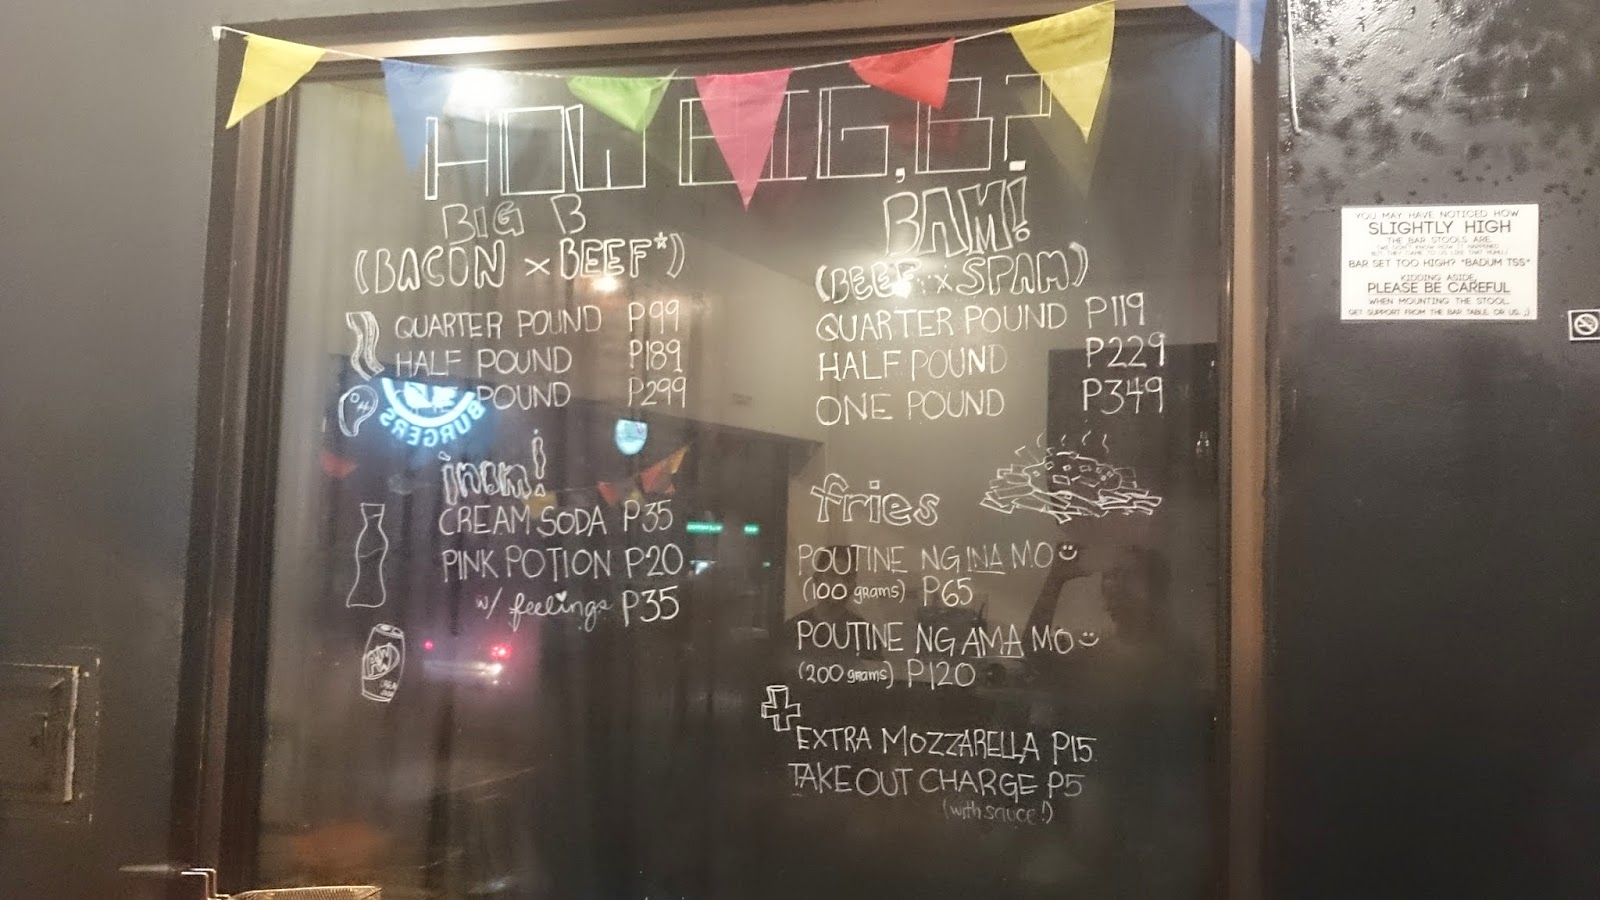 HOW BIG, BF?
BIG B
(BACON x BEEF*)
QUARTER POUND P99
HALF POUND P189
POUND P299
inom!
CREAM SODA P35
PINK POTION P20
w/ feelings P35
BAM!
(BEEF x SPAM)
QUARTER POUND P119
HALF POUND P229
ONE POUND P349
fries
POUTINE NG INA MO
(100 grams) P65
POUTINE NG AMA MO
(200 grams) P120
+
EXTRA MOZZARELLA P15
TAKE OUT CHARGE P5
(with sauce!)
BURGERS
YOU MAY HAVE NOTICED HOW
SLIGHTLY HIGH
THE BAR STOOLS ARE.
BAR SET TOO HIGH? *BADUM TSS*
KIDDING ASIDE,
PLEASE BE CAREFUL
WHEN MOUNTING THE STOOL.
GET SUPPORT FROM THE BAR TABLE, OR US. ;)